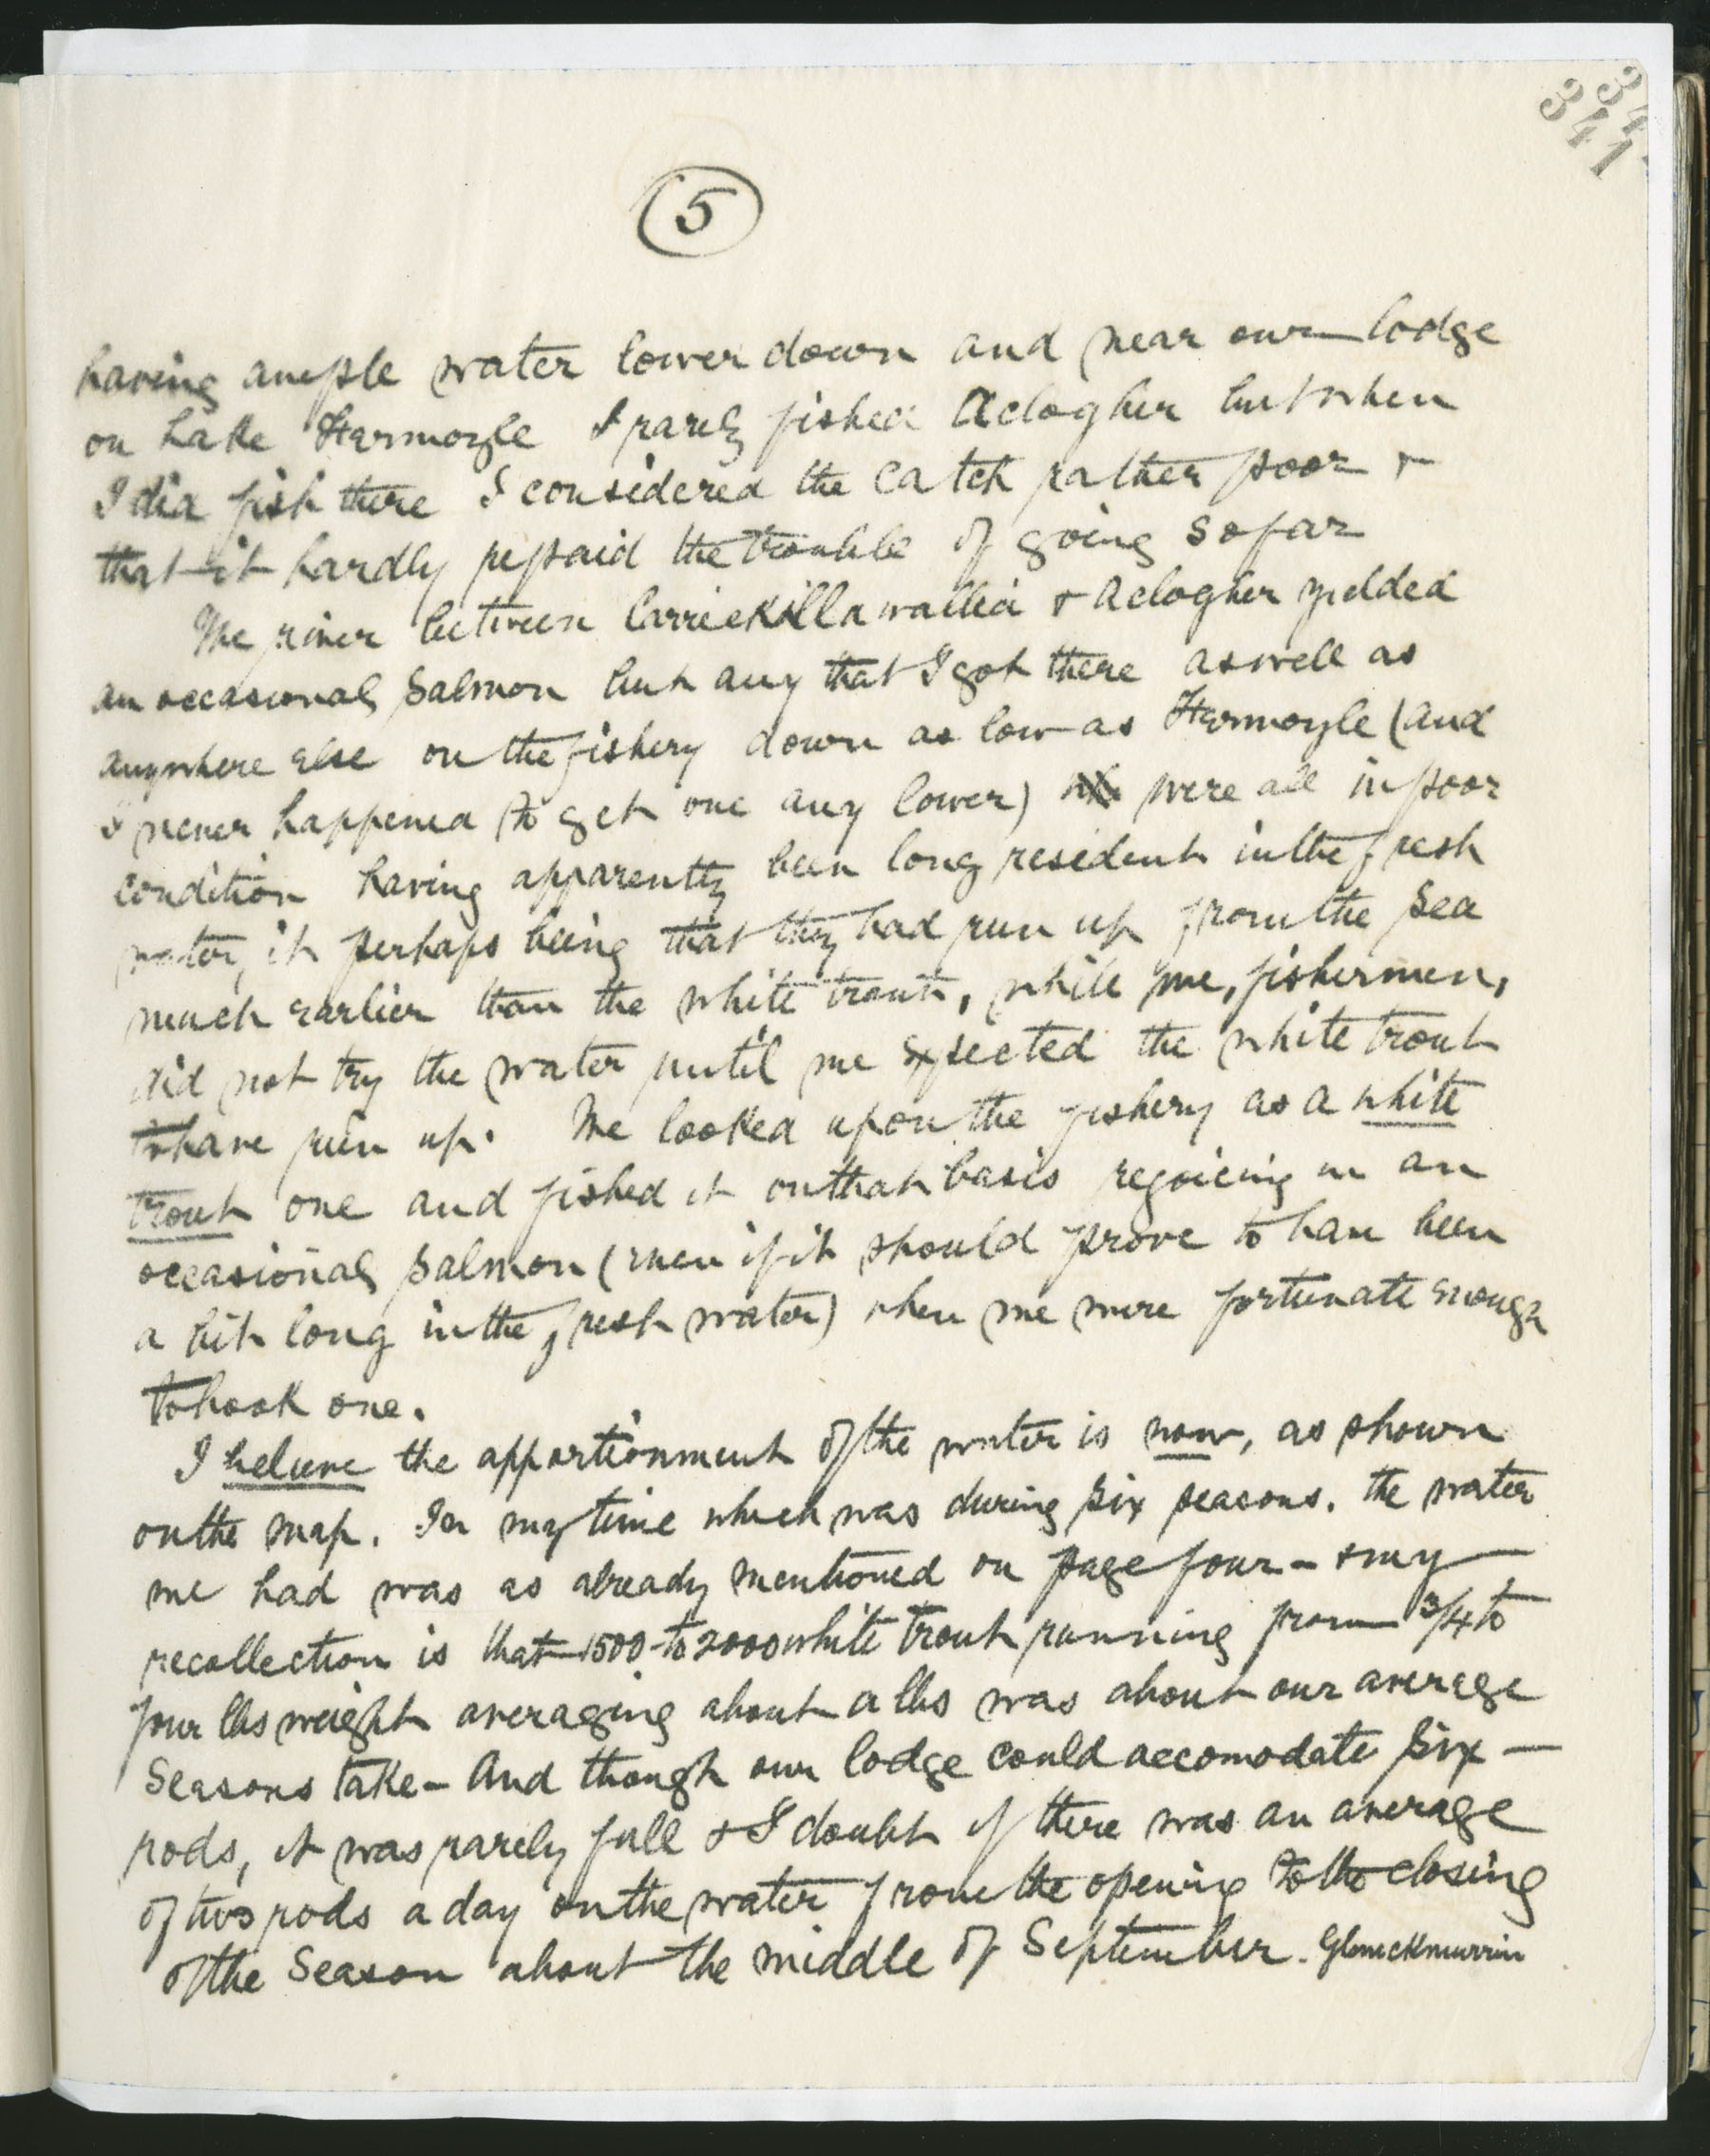 34
341
5
having ample water lower down and near our lodge
on Lake Fermoyle I rarely fished Aclogher but when
I did fish there I considered the catch rather poor &
that it hardly repaid the trouble of going so far
The river between Carrickillawallia & Aclogher yielded
an occasional Salmon but any that I got there as well as
anywhere else on the fishery down as low as Fermoyle (and
I never happened to get one any lower) were all in poor
condition having apparently been long resident in the fresh
water, it perhaps being that they had run up from the Sea
much earlier than the white trout, while we, fishermen,
did not try the water until we expected the white trout
to have run up. We looked upon the fishery as a white
trout one and fished it on that basis rejoicing in an
occasional salmon (even if it should prove to have been
a bit long in the fresh water) when we were fortunate enough
to hook one.
I believe the apportionment of the water is now, as shown
on the map. In my time which was during six seasons. the water
we had was as already mentioned on page four - & my
recollection is that 1500 to 2000 white trout running from 3/4 to
four lbs weight averaging about a lbs was about our average
Seasons take - And though our lodge could accomodate six
rods, it was rarely full & I doubt if there was an average
of two rods a day on the water from the opening to the closing
of the Season about the middle of September. Glenickmurrin